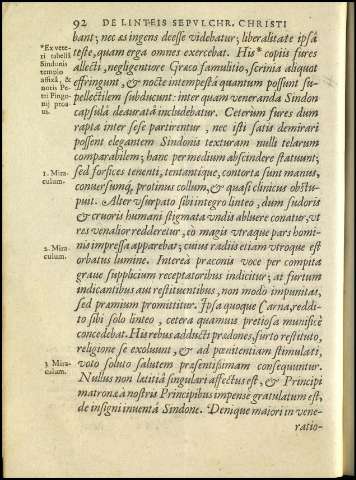 92 DE LINTEIS SEPVLCHR. CHRISTI
bant; nec as ingens deesse videbatur; liberalitate ipsâ
teste, quam erga omnes exercebat. His* copiis fures
allecti, negligentiore Græco famulitio, scrinia aliquot
effringunt, & nocte intempestâ quantum possunt su-
pellectilem subducunt: inter quam veneranda Sindon
capsulâ deauratâ includebatur. Ceterùm fures dum
rapta inter sese partirentur, nec isti satis demirari
possent elegantem Sindonis texturam nulli telarum
comparabilem; hanc per medium abscindere statuunt;
sed forfices tenenti, tentantique, contorta sunt manus,
conuersumq́; protinus collum, & quasi clinicus obstu-
puit. Alter vsurpato sibi integro linteo, dum sudoris
& cruoris humani stigmata vndis abluere conatur, vt
res venalior redderetur, eò magis vtraque pars homi-
nis impressa apparebat; cuius radiis etiam vtroque est
orbatus lumine. Intereà præconis voce per compita
graue supplicium receptatoribus indicitur; at furtum
indicantibus aut restituentibus, non modò impunitat,
sed præmium promittitur. Ipsa quoque Carna, reddi-
to sibi solo linteo, cetera quamuis pretiosa munificè
concedebat. His rebus adducti prædones, furto restituto,
religione se exoluunt, & ad pœnitentiam stimulati,
voto soluto salutem præsentissimam consequuntur.
Nullus non lætitiâ singulari affectus est, & Principi
matronæ à nostris Principibus impensè gratulatum est,
de insigni inuentâ Sindone. Denique maiori in vene-
ratio-
*Ex vete-
ri tabella
Sindonis
templo
affixa, &
notis Pe-
tri Pingo-
nij proa
us.
1. Mira-
culum.
2. Mira-
culum.
3. Mira-
culum.